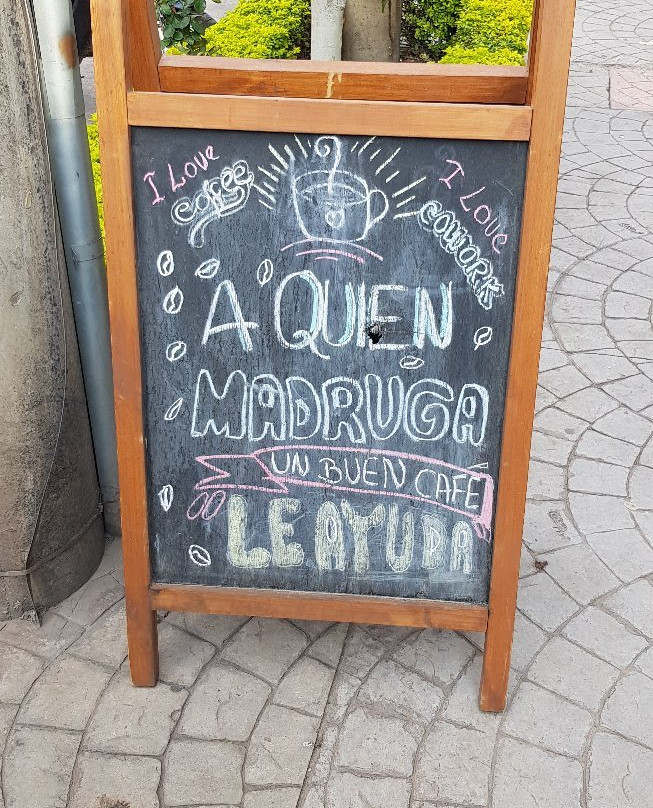 I Love
coffee
I Love
COWORK
A QUIEN
MADRUGA
UN BUEN CAFE
LE AYUDA